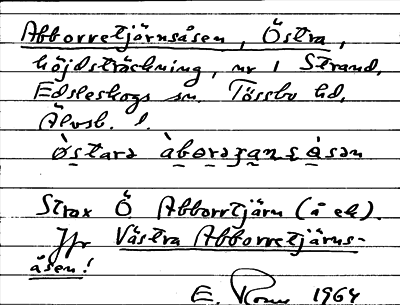 Abborretjärnsåsen, Östra,
höjdsträckning, nr 1 Strand,
Edsleskogs sn. Tössbo hd,
Älvsb. l.
östara àbərajanṣàsən
Strax Ö Abborrtjärn (å ek).
Jfr Västra Abborretjärns-
åsen!
E. 1964